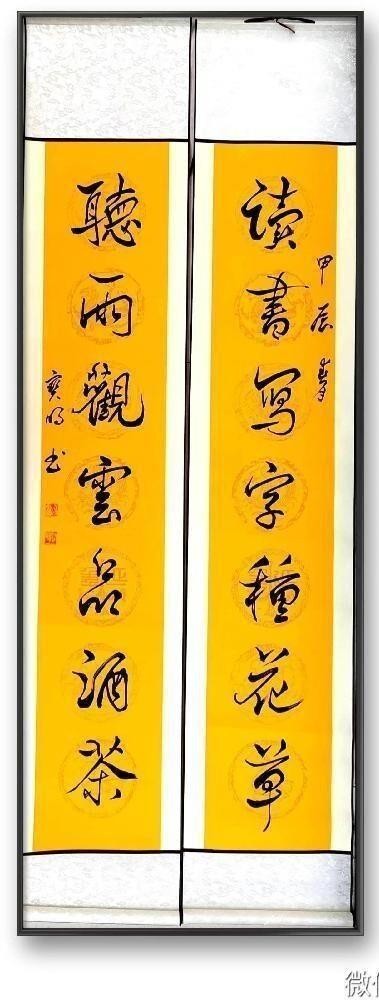 讀書寫字種花草
甲辰春
聽雨觀雲品酒茶
寶明書
微信